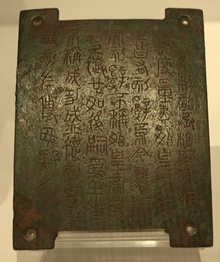 元年制詔丞相斯去疾
法度量盡始皇帝為
之皆有刻辭焉今襲號
而刻辭不稱始皇帝其
於久遠也如後嗣為之者
不稱成功盛德刻此詔
故刻左使毋疑